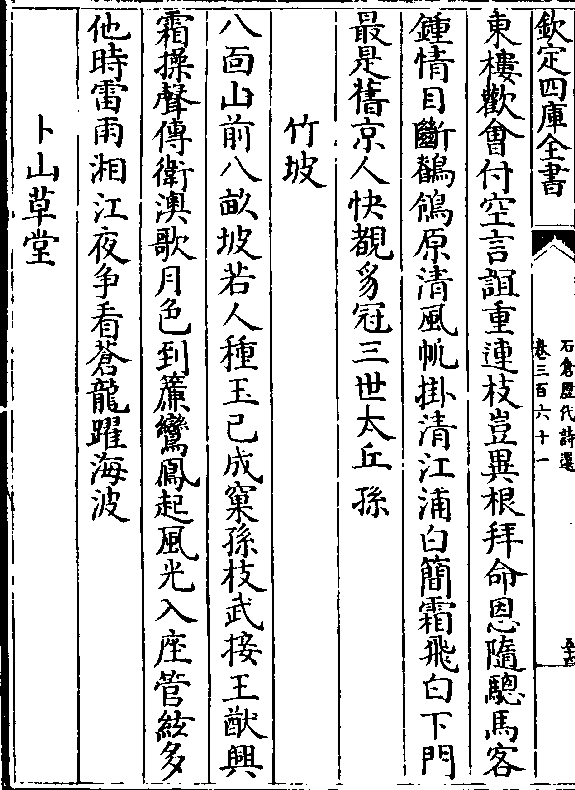 欽定四庫全書
石倉歷代詩選
卷三百六十一
東樓歡會付空言誼重連枝豈異根拜命恩隨驄馬客
鍾情目斷鶺鴒原清風帆掛清江浦白簡霜飛白下門
最是舊京人快覩豸冠三世太丘孫
竹坡
八面山前八畝坡若人種玉已成窠孫枝武接王猷興
霜操聲傳衛澳歌月色到簾鸞鳳起風光入座管絃多
他時雷雨湘江夜争看蒼龍躍海波
卜山草堂